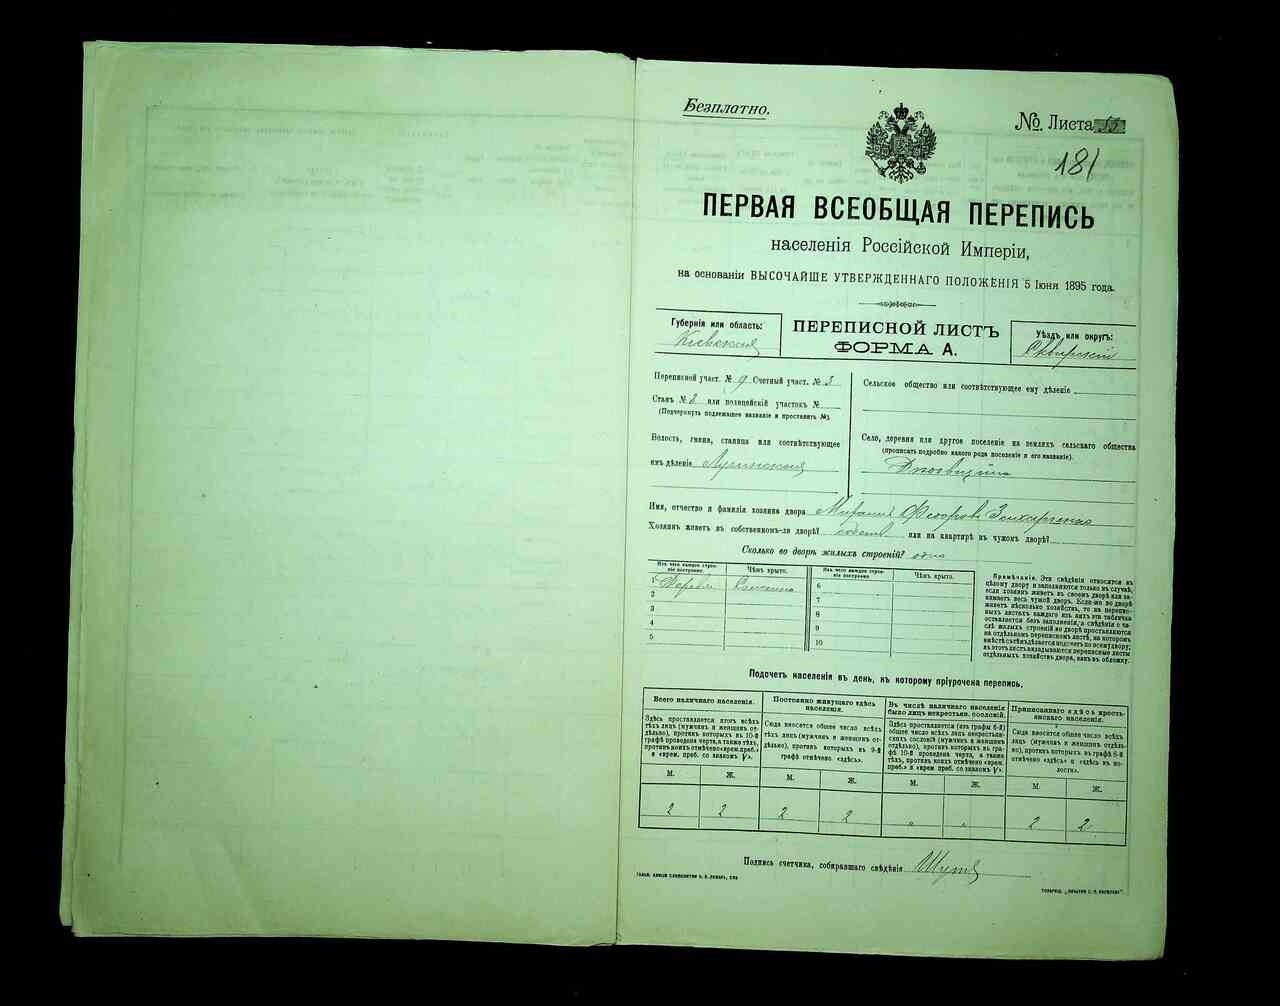 Безплатно.
№ Листа 53
181
ПЕРВАЯ ВСЕОБЩАЯ ПЕРЕПИСЬ
населенія Россійской Имперіи,
на основаніи ВЫСОЧАЙШЕ УТВЕРЖДЕННАГО ПОЛОЖЕНІЯ 5 Іюня 1895 года.
Губернія или область:
Кіевская
ПЕРЕПИСНОЙ ЛИСТЪ
ФОРМА А.
Уѣздъ или округъ:
Сквирскій
Переписной участ. № 9 Счетный участ. № 3
Станъ № 2 или полицейскій участокъ №
(Подчеркнуть подлежащее названіе и проставить №).
Волость, гмина, станица или соотвѣтствующее
имъ дѣленіе Лучинская
Сельское общество или соотвѣтствующее ему дѣленіе
Село, деревня или другое поселеніе на земляхъ сельскаго общества
(прописать подробно какого рода поселеніе и его названіе).
Имя, отчество и фамилія хозяина двора Федоровъ
Хозяинъ живетъ въ собственномъ-ли дворѣ? собств или на квартирѣ въ чужомъ дворѣ?
Сколько во дворѣ жилыхъ строеній? одно
Изъ чего каждое строеніе построено. Чѣмъ крыто. Изъ чего каждое строеніе построено. Чѣмъ крыто.
1 6
2 7
3 8
4 9
5 10
Примѣчаніе. Эти свѣдѣнія относятся къ
цѣлому двору и заполняются только въ случаѣ,
если хозяинъ живетъ въ своемъ дворѣ или занимаетъ
весь чужой дворъ. Если-же во дворѣ
живетъ нѣсколько хозяйствъ, то на переписныхъ
листахъ каждаго изъ нихъ эта табличка
оставляется безъ заполненія, а свѣдѣнія о числѣ
жилыхъ строеній во дворѣ проставляются
на отдѣльномъ переписномъ листѣ, на которомъ
вмѣстѣ съ тѣмъ дѣлается подсчетъ по всему двору;
въ этотъ листъ вкладываются переписные листы
отдѣльныхъ хозяйствъ двора, какъ въ обложку.
Подсчетъ населенія въ день, къ которому пріурочена перепись.
Всего наличнаго населенія.
Здѣсь проставляется итогъ всѣхъ
тѣхъ лицъ (мужчинъ и женщинъ отдѣльно),
противъ которыхъ въ 10-й
графѣ проведена черта, а также тѣхъ,
противъ коихъ отмѣчено «врем. преб.»
и «врем. преб. со знакомъ V».
Постоянно живущаго здѣсь населенія.
Сюда вносится общее число всѣхъ
тѣхъ лицъ (мужчинъ и женщинъ отдѣльно),
противъ которыхъ въ 9-й
графѣ отмѣчено «здѣсь».
Въ числѣ наличнаго населенія
было лицъ некрестьян. сословій.
Здѣсь проставляется (изъ графы 6-й)
общее число всѣхъ лицъ некрестьянскихъ
сословій (мужчинъ и женщинъ
отдѣльно), противъ которыхъ въ графѣ
10-й проведена черта, а также
тѣхъ, противъ коихъ отмѣчено «врем.
преб.» и «врем. преб. со знакомъ V».
Приписаннаго здѣсь крестьянскаго населенія.
Сюда вносится общее число всѣхъ
лицъ (мужчинъ и женщинъ отдѣльно),
противъ которыхъ въ графѣ 8-й
отмѣчено «здѣсь» и «здѣсь въ волости».
М. Ж. М. Ж. М. Ж. М. Ж.
2 2 2 2 „ „ 2 2
Подпись счетчика, собиравшаго свѣдѣнія